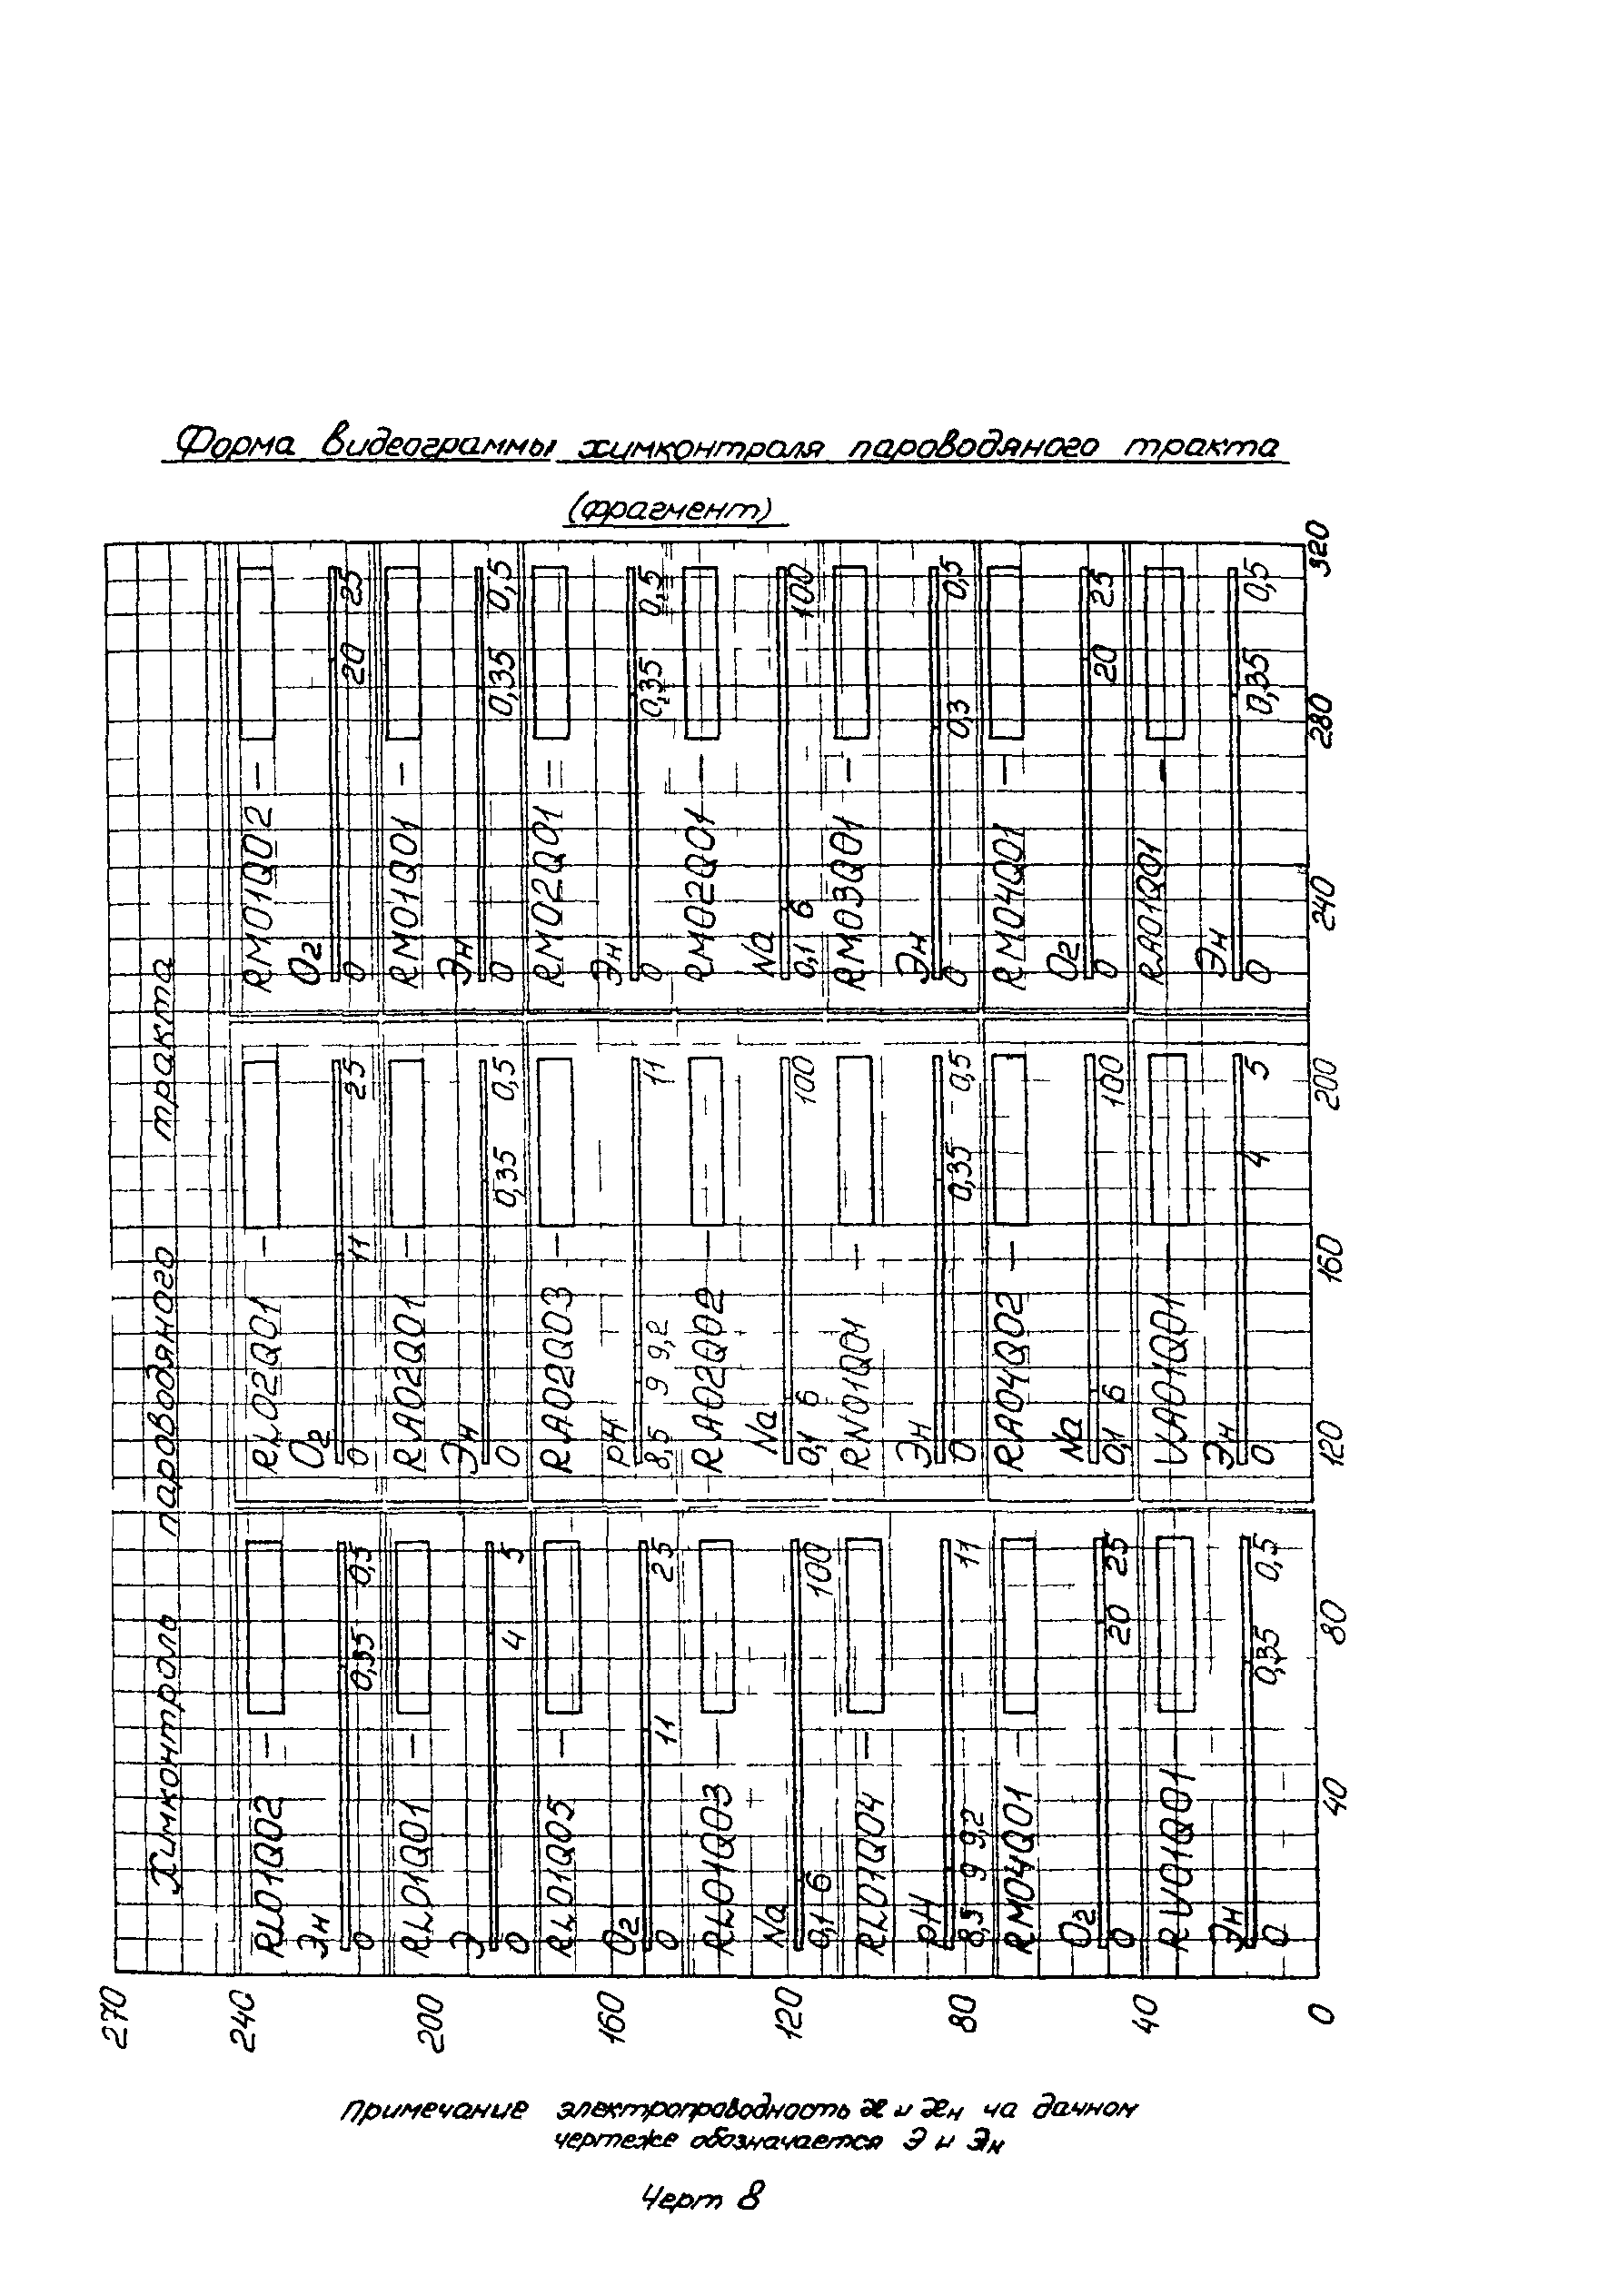 Форма видеограммы химконтроля пароводяного тракта
(фрагмент)
Химконтроль пароводяного тракта
RL01Q02 —
Эн
0 0,35 0,5
RL01Q01 —
Э
0 4 5
RL01Q05 —
O2
0 11 25
RL01Q03 —
Na
0,1 6 100
RL01Q04 —
pH
8,5 9 9,2 11
RM04Q01 —
O2
0 20 25
RV01Q01 —
Эн
0 0,35 0,5
RL02Q01 —
O2
0 11 25
RA02Q01 —
Эн
0 0,35 0,5
RA02Q03 —
pH
8,5 9 9,2 11
RA02Q02 —
Na
0,1 6 100
RN01Q01 —
Эн
0 0,35 0,5
RA04Q02 —
Na
0,1 6 100
UA01Q01 —
Эн
0 4 5
RM01Q02 —
O2
0 20 25
RM01Q01 —
Эн
0 0,35 0,5
RM02Q01 =
Эн
0 0,35 0,5
RM02Q01 —
Na
0,1 6 100
RM03Q01 —
Эн
0 0,3 0,5
RM04Q01 —
O2
0 20 25
RA01Q01 —
Эн
0 0,35 0,5
270
240
200
160
120
80
40
0
40
80
120
160
200
240
280
320
Примечание электропроводность æ и æн на данном
чертеже обозначается Э и Эн
Черт 8